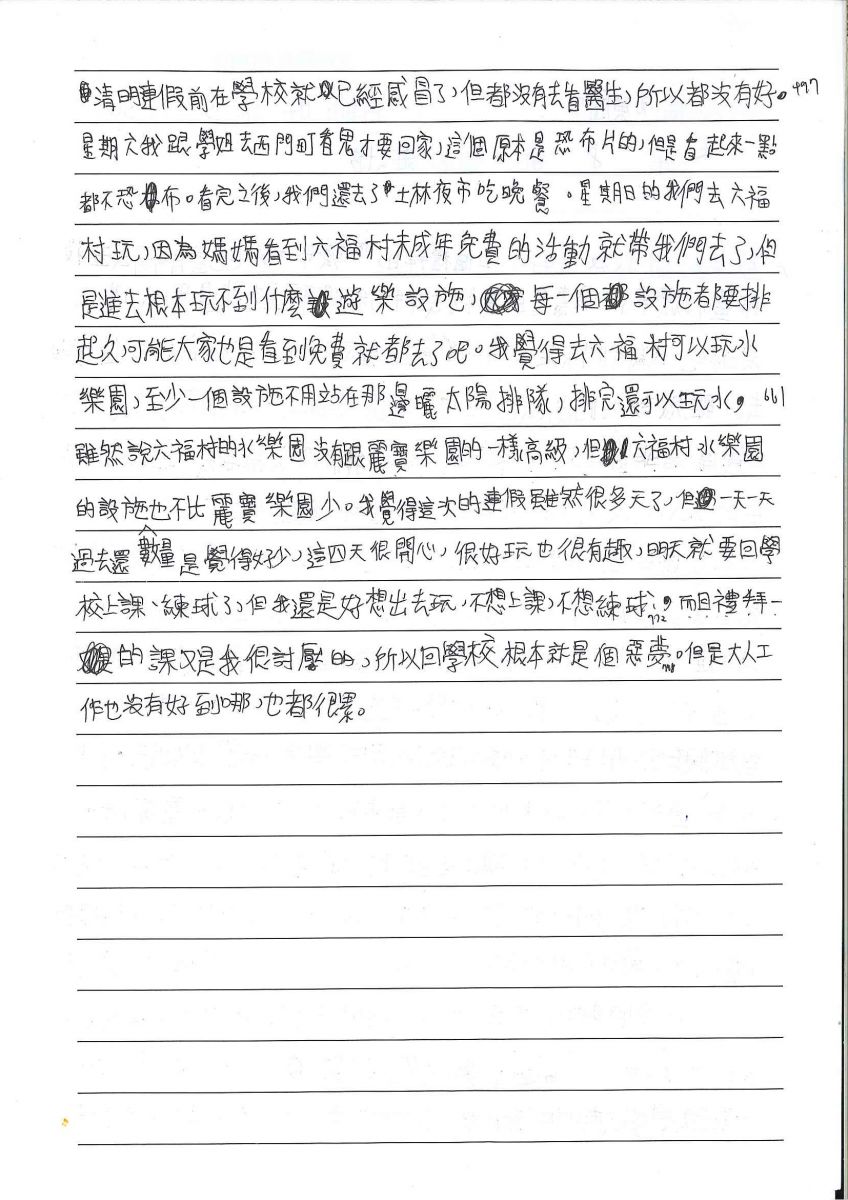 清明連假前在學校就已經感冒了,但都沒有去看醫生,所以都沒有好。497
星期六我跟學姐去西門町看鬼才要回家,這個原本是恐布片的,但是看起來一點
都不恐布。看完之後,我們還去了士林夜市吃晚餐。星期日的我們去六福
村玩,因為媽媽看到六福村未成年免費的活動就帶我們去了,但
是進去根本玩不到什麼遊樂設施,每一個設施都要排
起久,可能大家也是看到免費就都去了吧。我覺得去六福村可以玩水
樂園,至少一個設施不用站在那邊曬太陽排隊,排完還可以玩水, 661
雖然說六福村的水樂園沒有跟麗寶樂園的一樣高級,但六福村水樂園
的設施也不比麗寶樂園少。我覺得這次的連假雖然很多天了,但一天一天
過去還數量是覺得好少,這四天很開心,很好玩也很有趣,明天就要回學
校上課、練球了,但我還是好想出去玩,不想上課,不想練球;772而且禮拜一
的課又是我很討壓的,所以回學校根本就是個惡夢。但是大人工
作也沒有好到哪,也都很累。